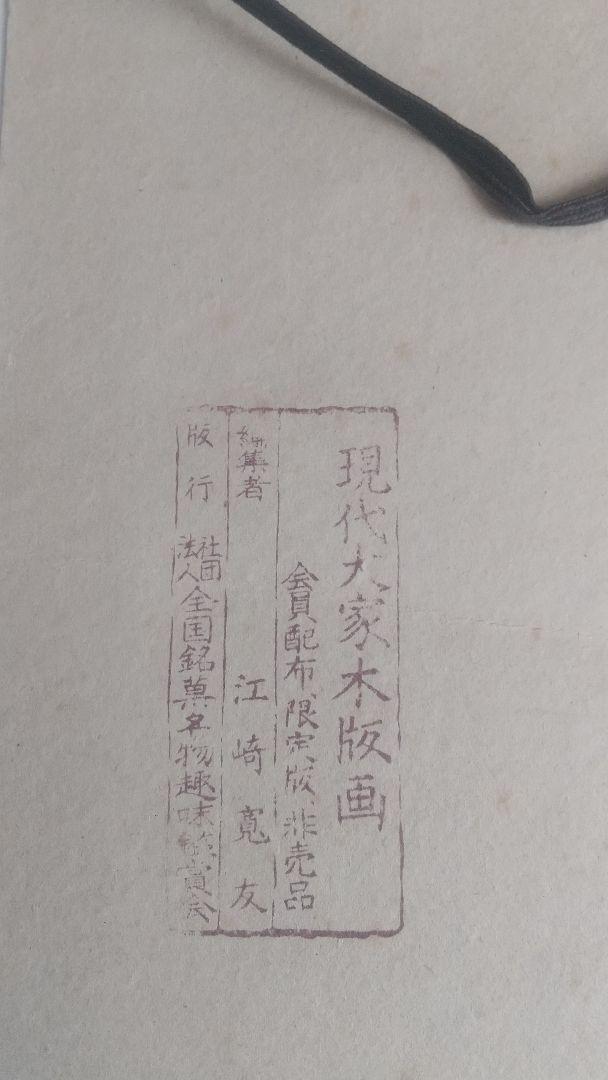 現代大家木版画
会員配布、限定版、非売品
編集者 江崎寛友
版行 社団法人全国銘菓名物趣味鑑賞会